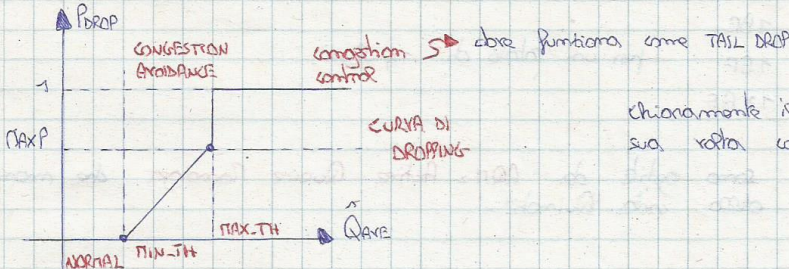 PDROP
CONGESTION
AVOIDANCE
congestion
control
dove funziona come TAIL DROP
1
MAXP
CURVA DI
DROPPING
chiaramente
sua volta
NORMAL
MIN_TH
MAX_TH
QAVE